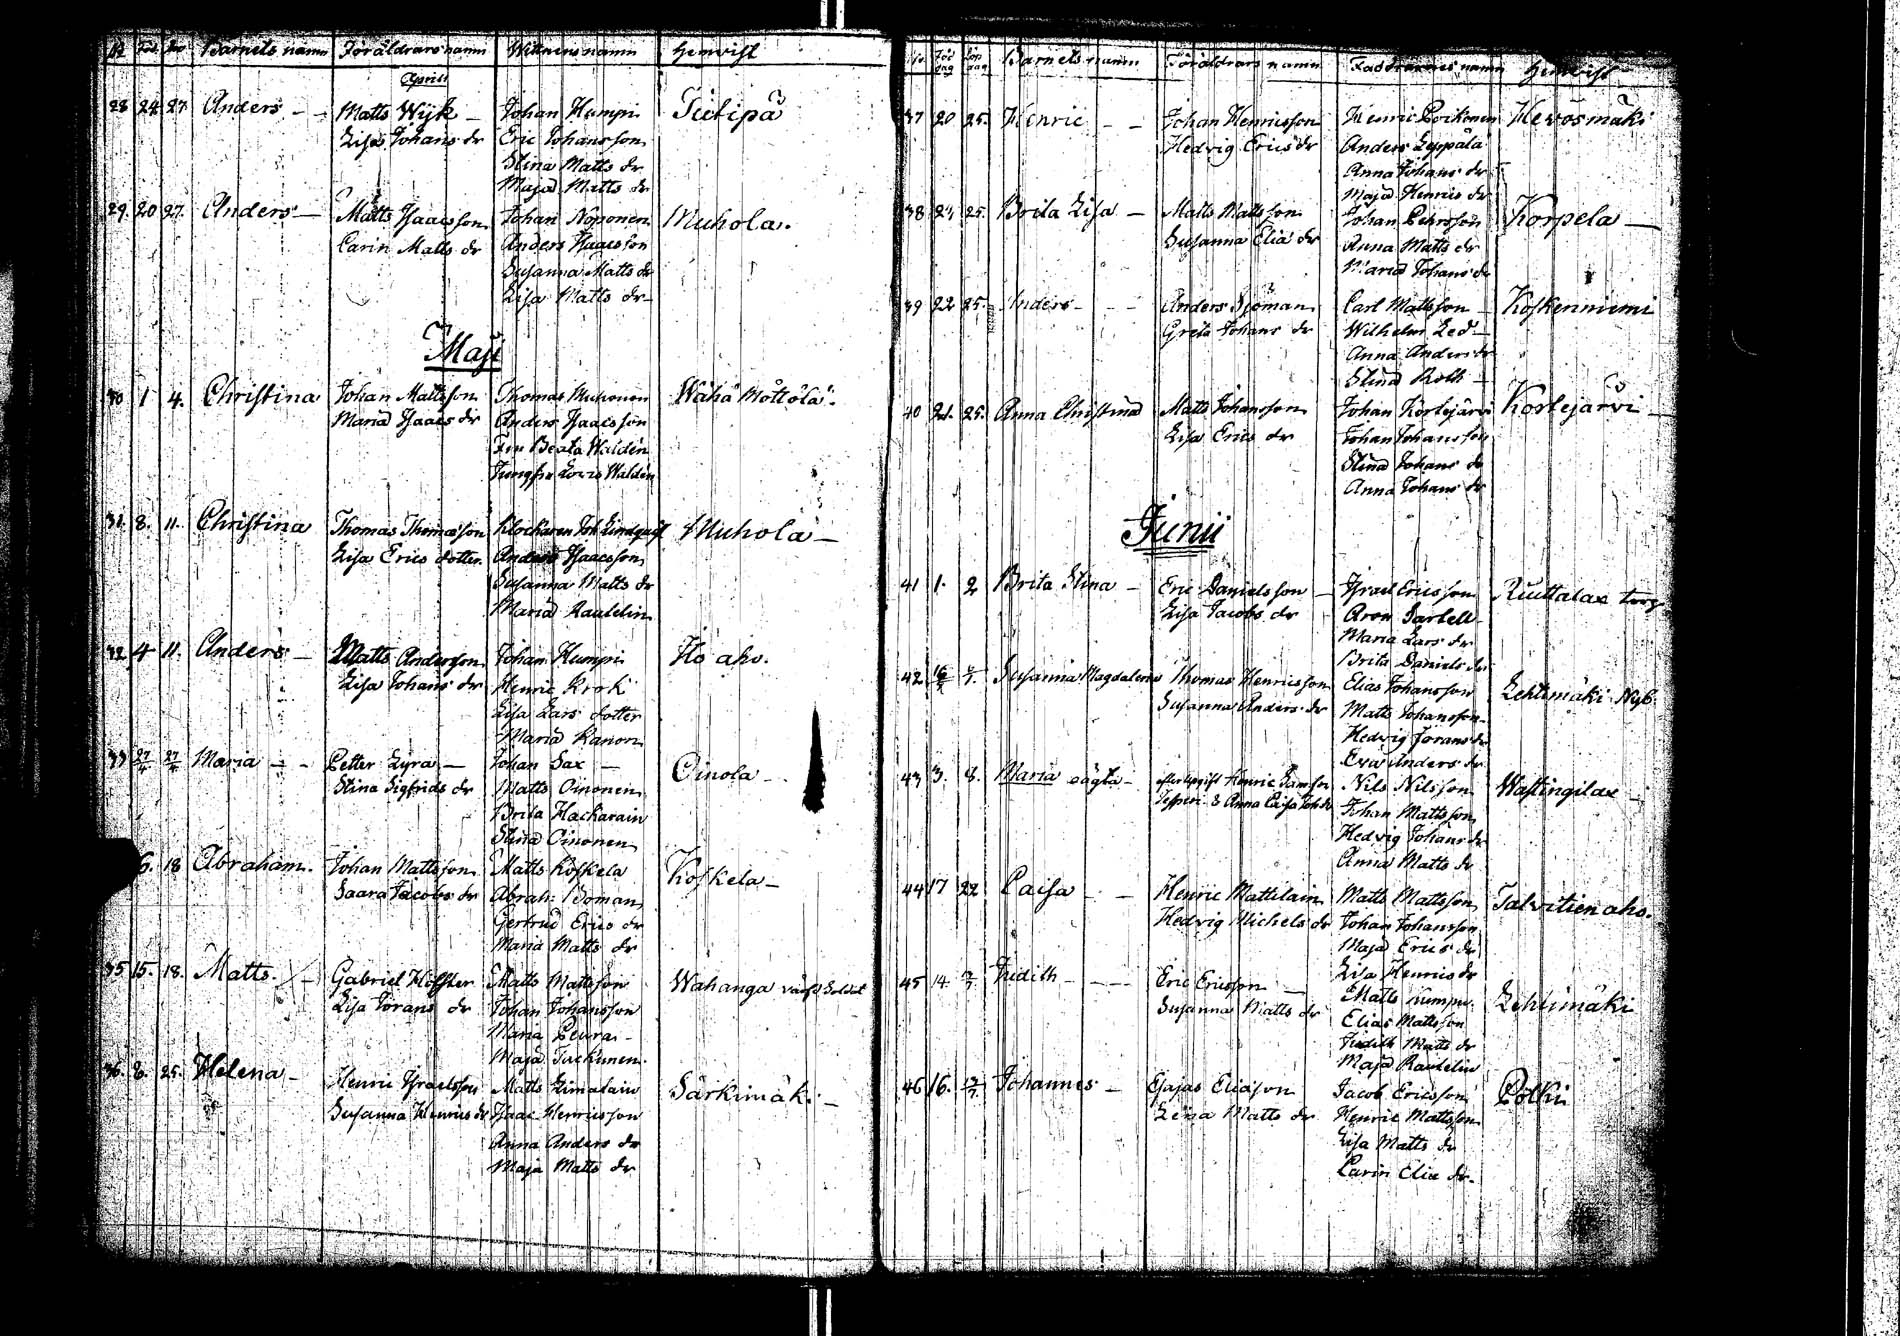 N Föd. Döp Barnets namn Föräldrars namn Wittnens namn Hemvist
Aprill
28 24 27 Anders — Matts Wijk — Johan Humpi Tiitipä
Lisa Johans dr Eric Johansson
Stina Matts dr
Maja Matts dr
29. 20 27. Anders — Matts Isaacsson Johan Noponen Muhola.
Carin Matts dr Anders Isaacsson
Susanna Matts dr
Lisa Matts dr
Maji
30 1 4. Christina Johan Mattsson Thomas Muhonen Wähä Möttölä.
Maria Isaacs dr Anders Isaacsson
Fru Beata Waldén
Jungfru Lovis Waldén
31. 8. 11. Christina Thomas Thomasson Klockaren Joh Lindquist Muhola —
Lisa Erics dotter Anders Isaacsson
Susanna Matts dr
Maria Rautelin
32 4 11. Anders — Matts Andersson Johan Humpi Ho aho.
Lisa Johans dr Henric Krok
Lisa Lars dotter
Maria Kanon
33 27/4 27/4 Maria — Petter Lyra — Johan Sax — Oinola —
Stina Sigfrids dr Matts Oinonen
Brita Hackarain
Stina Oinonen
6. 18 Abraham. Johan Mattsson Matts Koskela Koskela —
Saara Jacobs dr Abrah: Boman
Gertrud Erics dr
Maria Matts dr
35 15. 18. Matts. — Gabriel Höffler Matts Mattsson Wahanga värfd Soldat
Lisa Jörans dr Johan Johansson
Maria Peura
Maja Turkinen
36. 8. 25. Helena — Henric Israelsson Matts Limatain Särkimäki —
Susanna Henrics dr Isaac Henricsson
Anna Anders dr
Maja Matts dr
N. Föd dag Döp dag Barnets namn Föräldrars namn Faddrarnes namn Hemvist
37 20 25. Henric — Johan Henricsson Henric Poikonen Hevosmäki
Hedvig Erics dr Anders Leppälä
Anna Johans dr
Maja Henrics dr
38 25. Brita Lisa — Matts Mattsson Johan Pehrsson Korpela —
Susanna Eliæ dr Anna Matts dr
Maria Johans dr
39 22 25. Anders — Anders Sjöman Carl Mattsson Koskenniemi
Greta Johans dr Wilhelm Led —
Anna Anders dr
Stina Roth —
40 21. 25. Anna Christina Matts Johansson Johan Kortejärvi Kortejärvi —
Lisa Erics dr Johan Johansson
Stina Johans dr
Anna Johans dr
Junii
41 1. 2 Brita Stina — Eric Danielsson — Israel Ericsson Ruuttalax torp
Lisa Jacobs dr Aron Sartell
Maria Lars dr
Brita Daniels dr
42 Susanna Magdalena Thomas Henricsson Elias Johansson Lehtimäki Nyb.
Susanna Anders dr Matts Johansson
Hedvig Jörans dr
Eva Anders dr
43 3. 8. Maria oägta — efter uppgift Henric Samson Nils Nilsson Wastingilax —
& Anna Caisa Joh dr Johan Mattsson
Hedvig Johans dr
Anna Matts dr
44 17 22 Caisa — Henric Mattilain Matts Mattsson Talvitienaho.
Hedvig Michels dr Johan Johansson
Maja Erics dr
Lisa Henrics dr
45 14. Judith — Eric Ericsson — Matts Lehtimäki
Susanna Matts dr Elias Mattsson
Judith Matts dr
Maja Rautelin
46 16. Johannes — Esajas Eliasson Jacob Ericsson Pölki
Lena Matts dr Henric Mattsson
Lisa Matts dr
Carin Eliæ dr